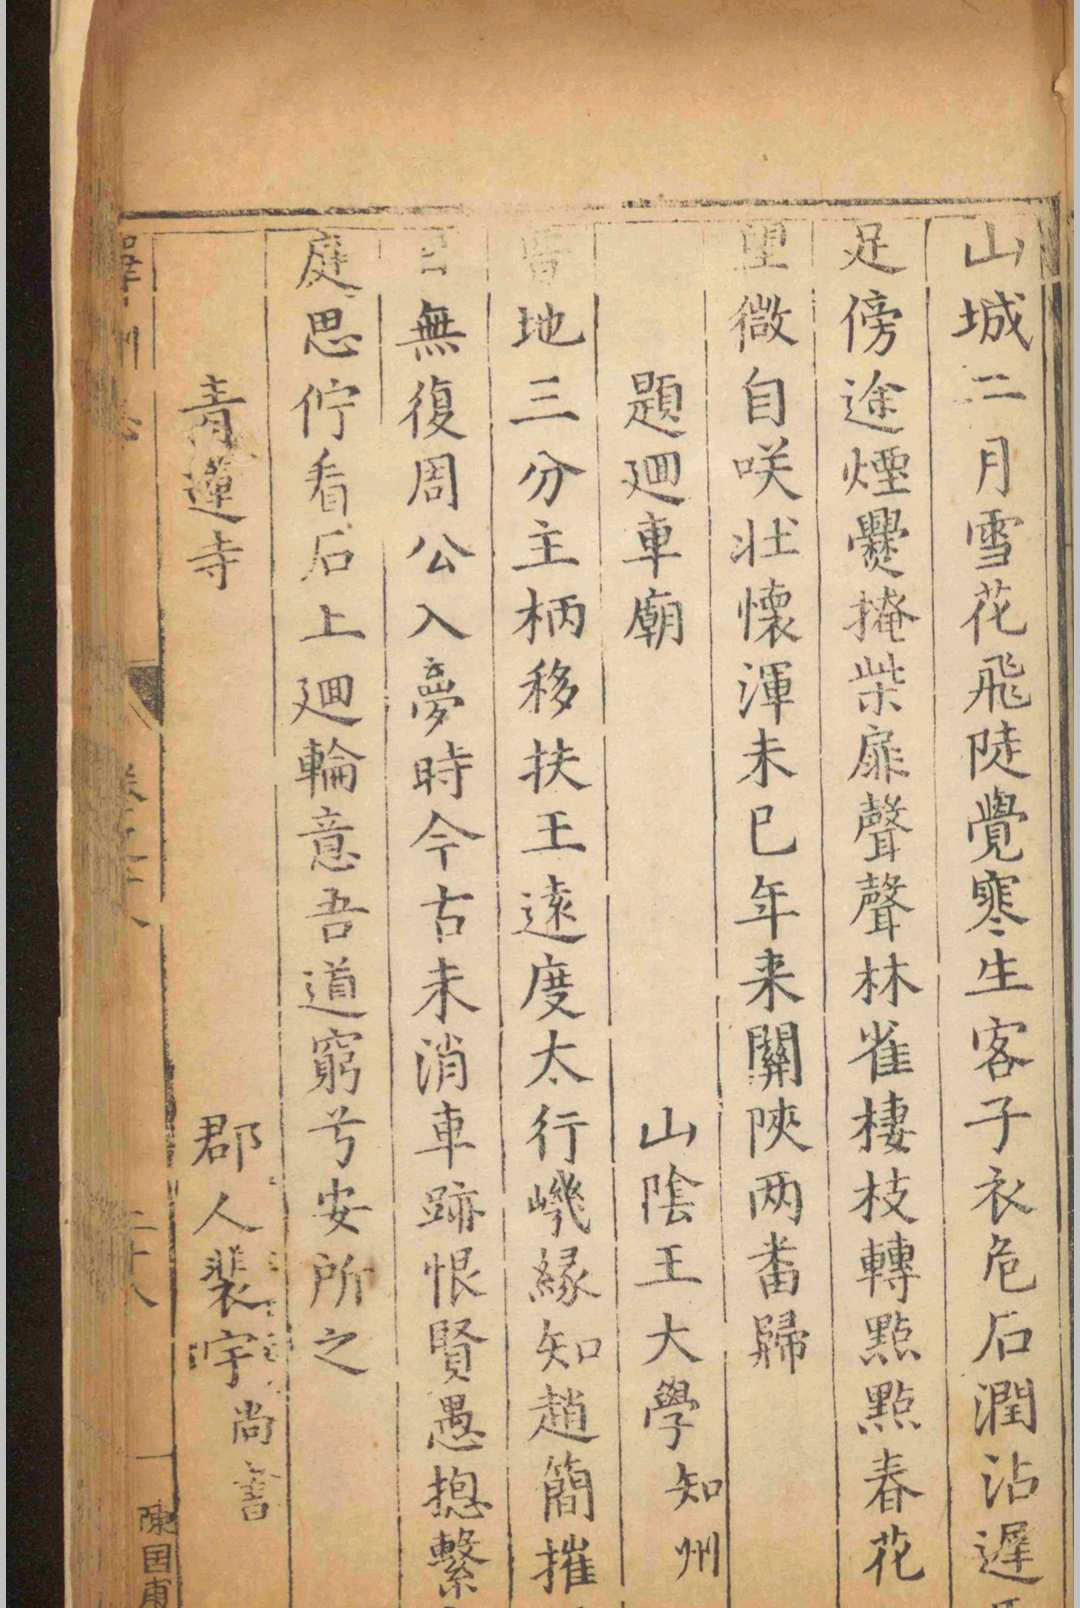 山城二月雪花飛陡覺寒生客子衣危石潤沾遲
足傍途煙爨掩柴扉聲聲林雀棲枝轉點點春花
望微自咲壯懷渾未已年来關陝两畨歸
題廻車廟 山陰王大學知州
晋地三分主柄移扶王遠度太行嶬緣知趙簡摧
無復周公入夢時今古未消車跡恨賢愚揔繫
庭思佇看石上廻輪意吾道窮兮安所之
青蓮寺 郡人裴宇尚書
澤州志 卷之十八 二十八 陳国